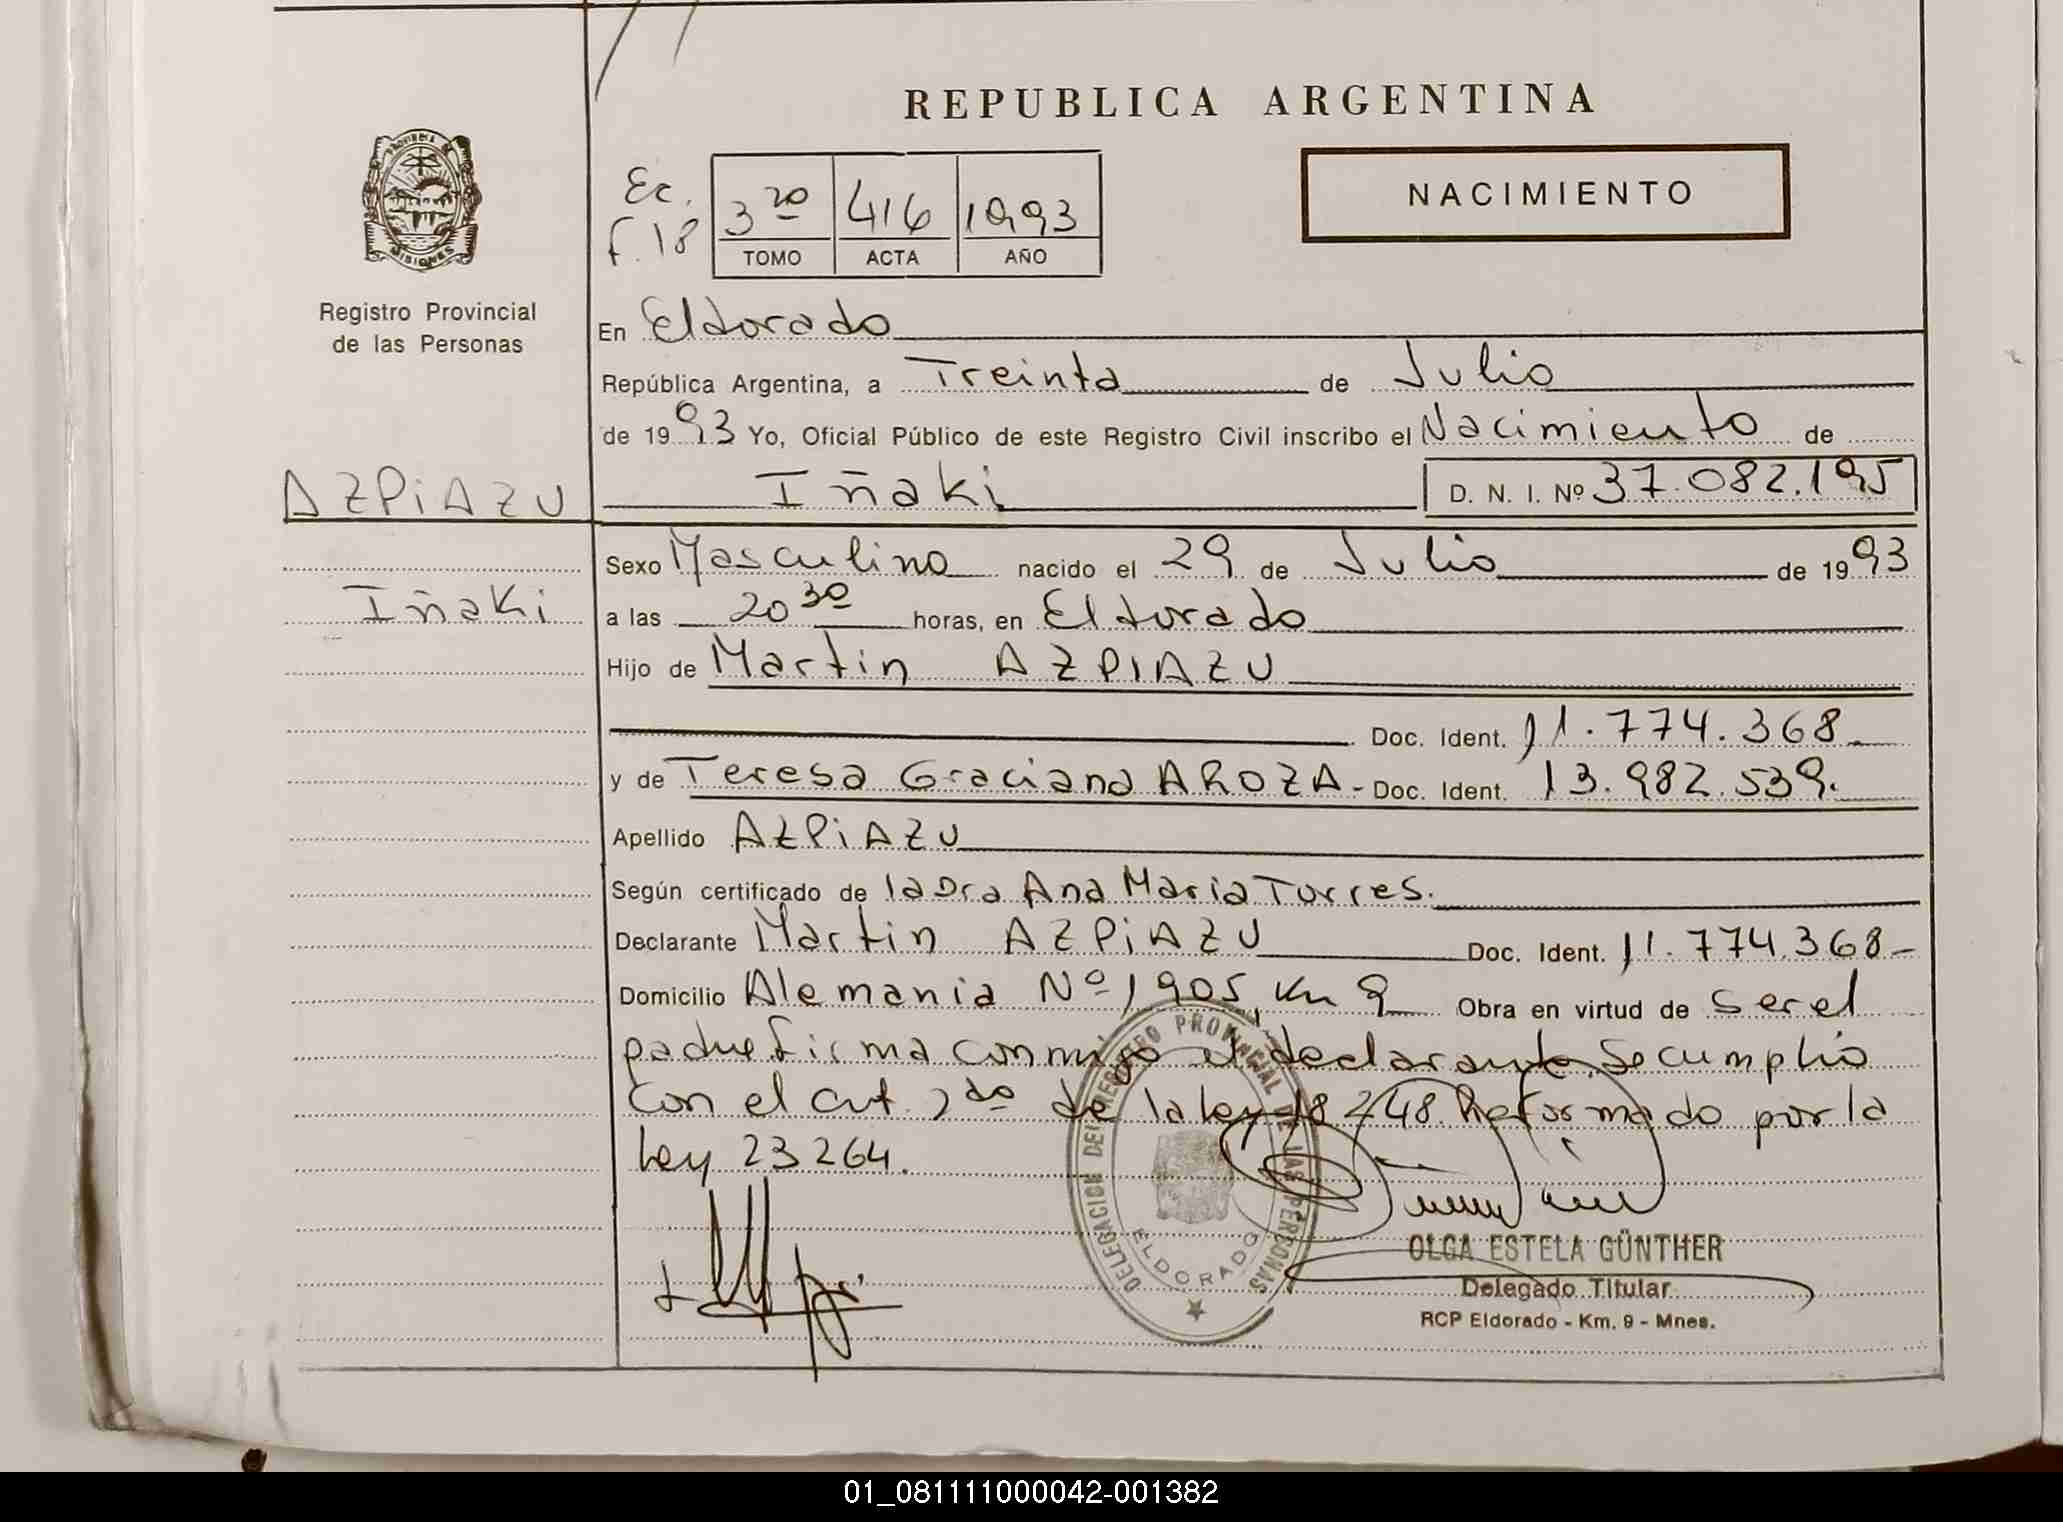 REPUBLICA ARGENTINA
NACIMIENTO
Ec.
F. 18
3 ro 416 1993
TOMO ACTA AÑO
PROVINCIA DE
MISIONES
Registro Provincial
de las Personas
En Eldorado
República Argentina, a Treinta de Julio
de 1993 Yo, Oficial Público de este Registro Civil inscribo el Nacimiento de
AZPIAZU
Iñaki
Iñaki D. N. I. Nº 37.082.195
Sexo Masculino nacido el 29 de Julio de 1993
a las 20 30 horas, en Eldorado
Hijo de Martin AZPIAZU
Doc. Ident. 11.774.368
y de Teresa Graciana AROZA - Doc. Ident. 13.982.539.
Apellido AZPIAZU
Según certificado de la Dra Ana Maria Torres.
Declarante Martin AZPIAZU Doc. Ident. 11.774.368-
Domicilio Alemania Nº 1905, Km 9 Obra en virtud de ser el
padre firma conmigo el declarante. Se cumplio
con el art. 2do de la ley 18248 Reformado por la
Ley 23264.
DELEGACION DEL REGISTRO PROVINCIAL DE LAS PERSONAS
ELDORADO
OLGA ESTELA GÜNTHER
Delegado Titular
RCP Eldorado - Km. 9 - Mnes.
01_081111000042-001382